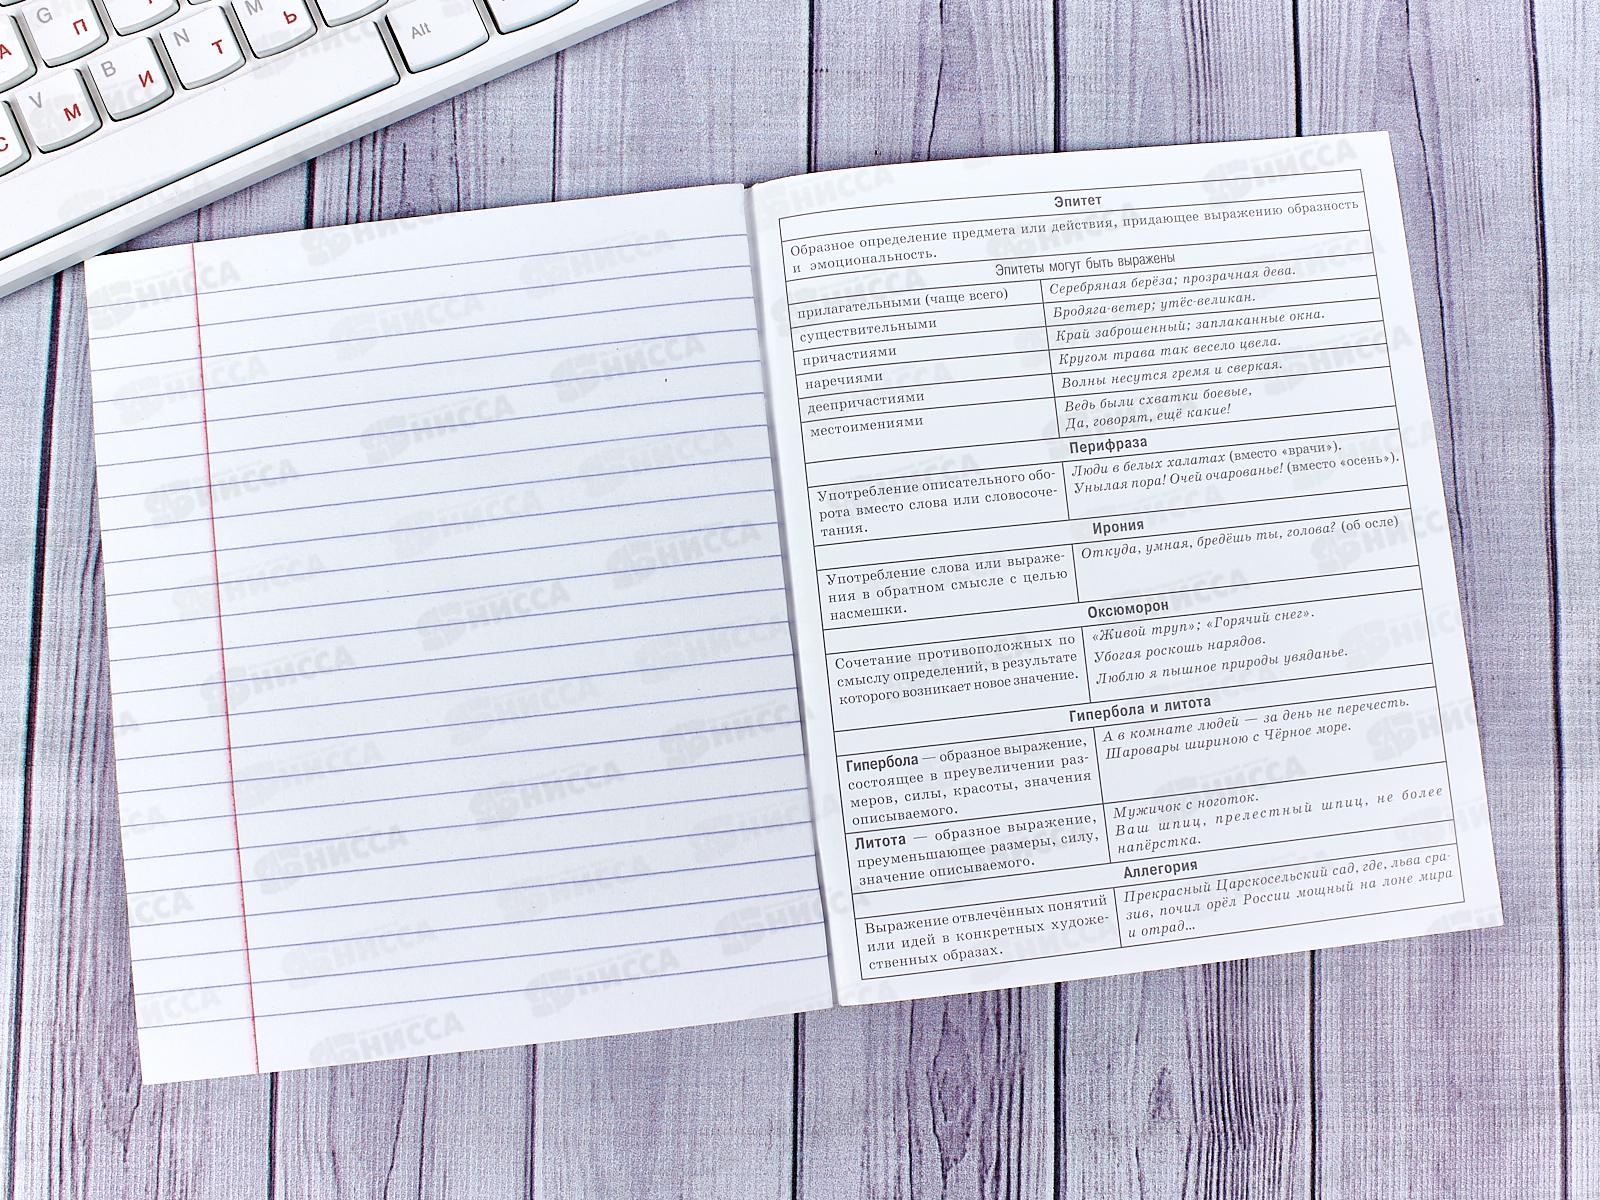 G П
А
N Т
M Ь
Alt
B И
V М
С
Эпитет
Образное определение предмета или действия, придающее выражению образность
и эмоциональность.
Эпитеты могут быть выражены
прилагательными (чаще всего)
Серебряная берёза; прозрачная дева.
существительными
Бродяга-ветер; утёс-великан.
причастиями
Край заброшенный; заплаканные окна.
наречиями
Кругом трава так весело цвела.
деепричастиями
Волны несутся гремя и сверкая.
местоимениями
Ведь были схватки боевые,
Да, говорят, ещё какие!
Перифраза
Употребление описательного обо-
рота вместо слова или словосоче-
тания.
Люди в белых халатах (вместо «врачи»).
Унылая пора! Очей очарованье! (вместо «осень»).
Ирония
Употребление слова или выраже-
ния в обратном смысле с целью
насмешки.
Откуда, умная, бредёшь ты, голова? (об осле)
Оксюморон
Сочетание противоположных по
смыслу определений, в результате
которого возникает новое значение.
«Живой труп»; «Горячий снег».
Убогая роскошь нарядов.
Люблю я пышное природы увяданье.
Гипербола и литота
Гипербола — образное выражение,
состоящее в преувеличении раз-
меров, силы, красоты, значения
описываемого.
А в комнате людей — за день не перечесть.
Шаровары шириною с Чёрное море.
Литота — образное выражение,
преуменьшающее размеры, силу,
значение описываемого.
Мужичок с ноготок.
Ваш шпиц, прелестный шпиц, не более
напёрстка.
Аллегория
Выражение отвлечённых понятий
или идей в конкретных художе-
ственных образах.
Прекрасный Царскосельский сад, где, льва сра-
зив, почил орёл России мощный на лоне мира
и отрад...
НИССА